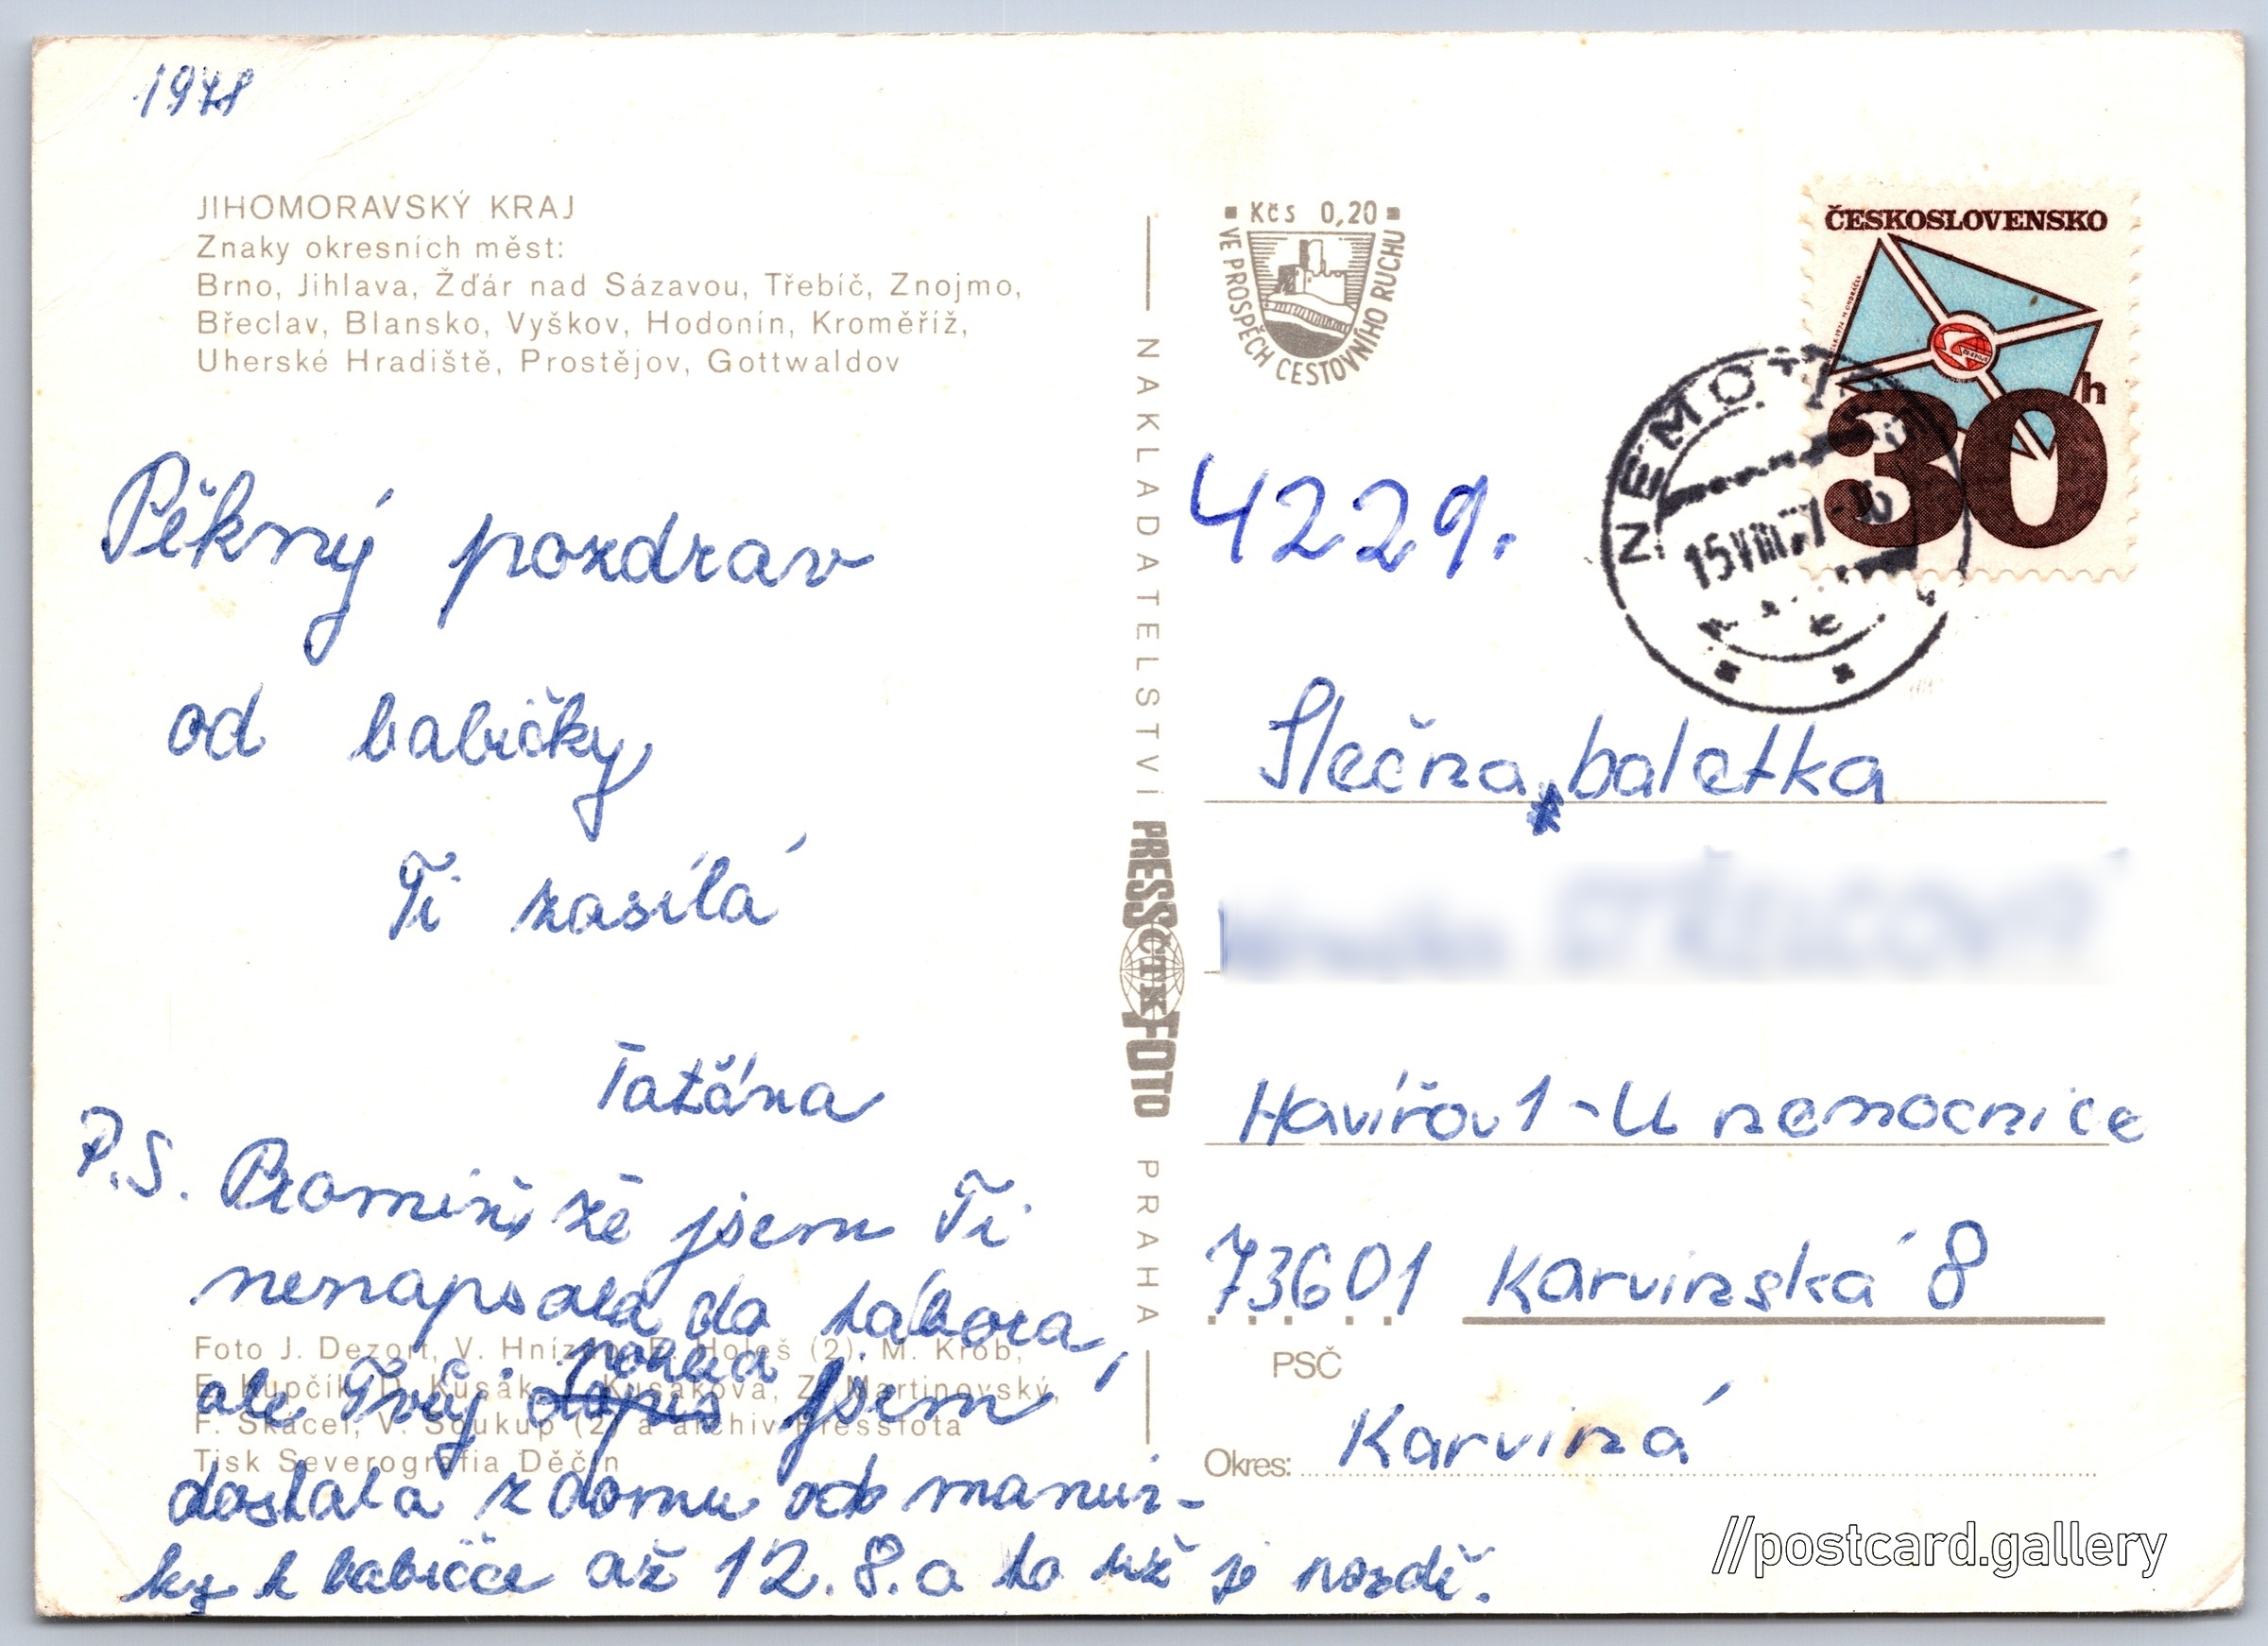 1978
JIHOMORAVSKÝ KRAJ
Znaky okresních měst:
Brno, Jihlava, Žďár nad Sázavou, Třebíč, Znojmo,
Břeclav, Blansko, Vyškov, Hodonín, Kroměříž,
Uherské Hradiště, Prostějov, Gottwaldov
Pěkný pozdrav
od babičky
Ti zasílá
Tatána
P.S. Promiň že jsem Ti
nenapsala do tábora,
pohled
ale Tvůj dopis jsem
dostala z domu od mamin-
ky k babičče až 12.8. a to už je pozdě.
Foto J. Dezort, V. Hnízdo, E. Holeš (2), M. Krob,
E. Kupčík, D. Kusák, Kusáková, Z. Martinovský,
F. Skácel, V. Soukup (2) a archiv Pressfota
Tisk Severografia Děčín
NAKLADATELSTVÍ PRESSFOTO PRAHA
ČTK
Kčs 0,20
VE PROSPĚCH CESTOVNÍHO RUCHU
ČESKOSLOVENSKO
30 h
15 VIII
4229.
Slečna baletka
Havířov 1 - U nemocnice
73601 Karvinská 8
PSČ
Okres: Karviná
//postcard.gallery